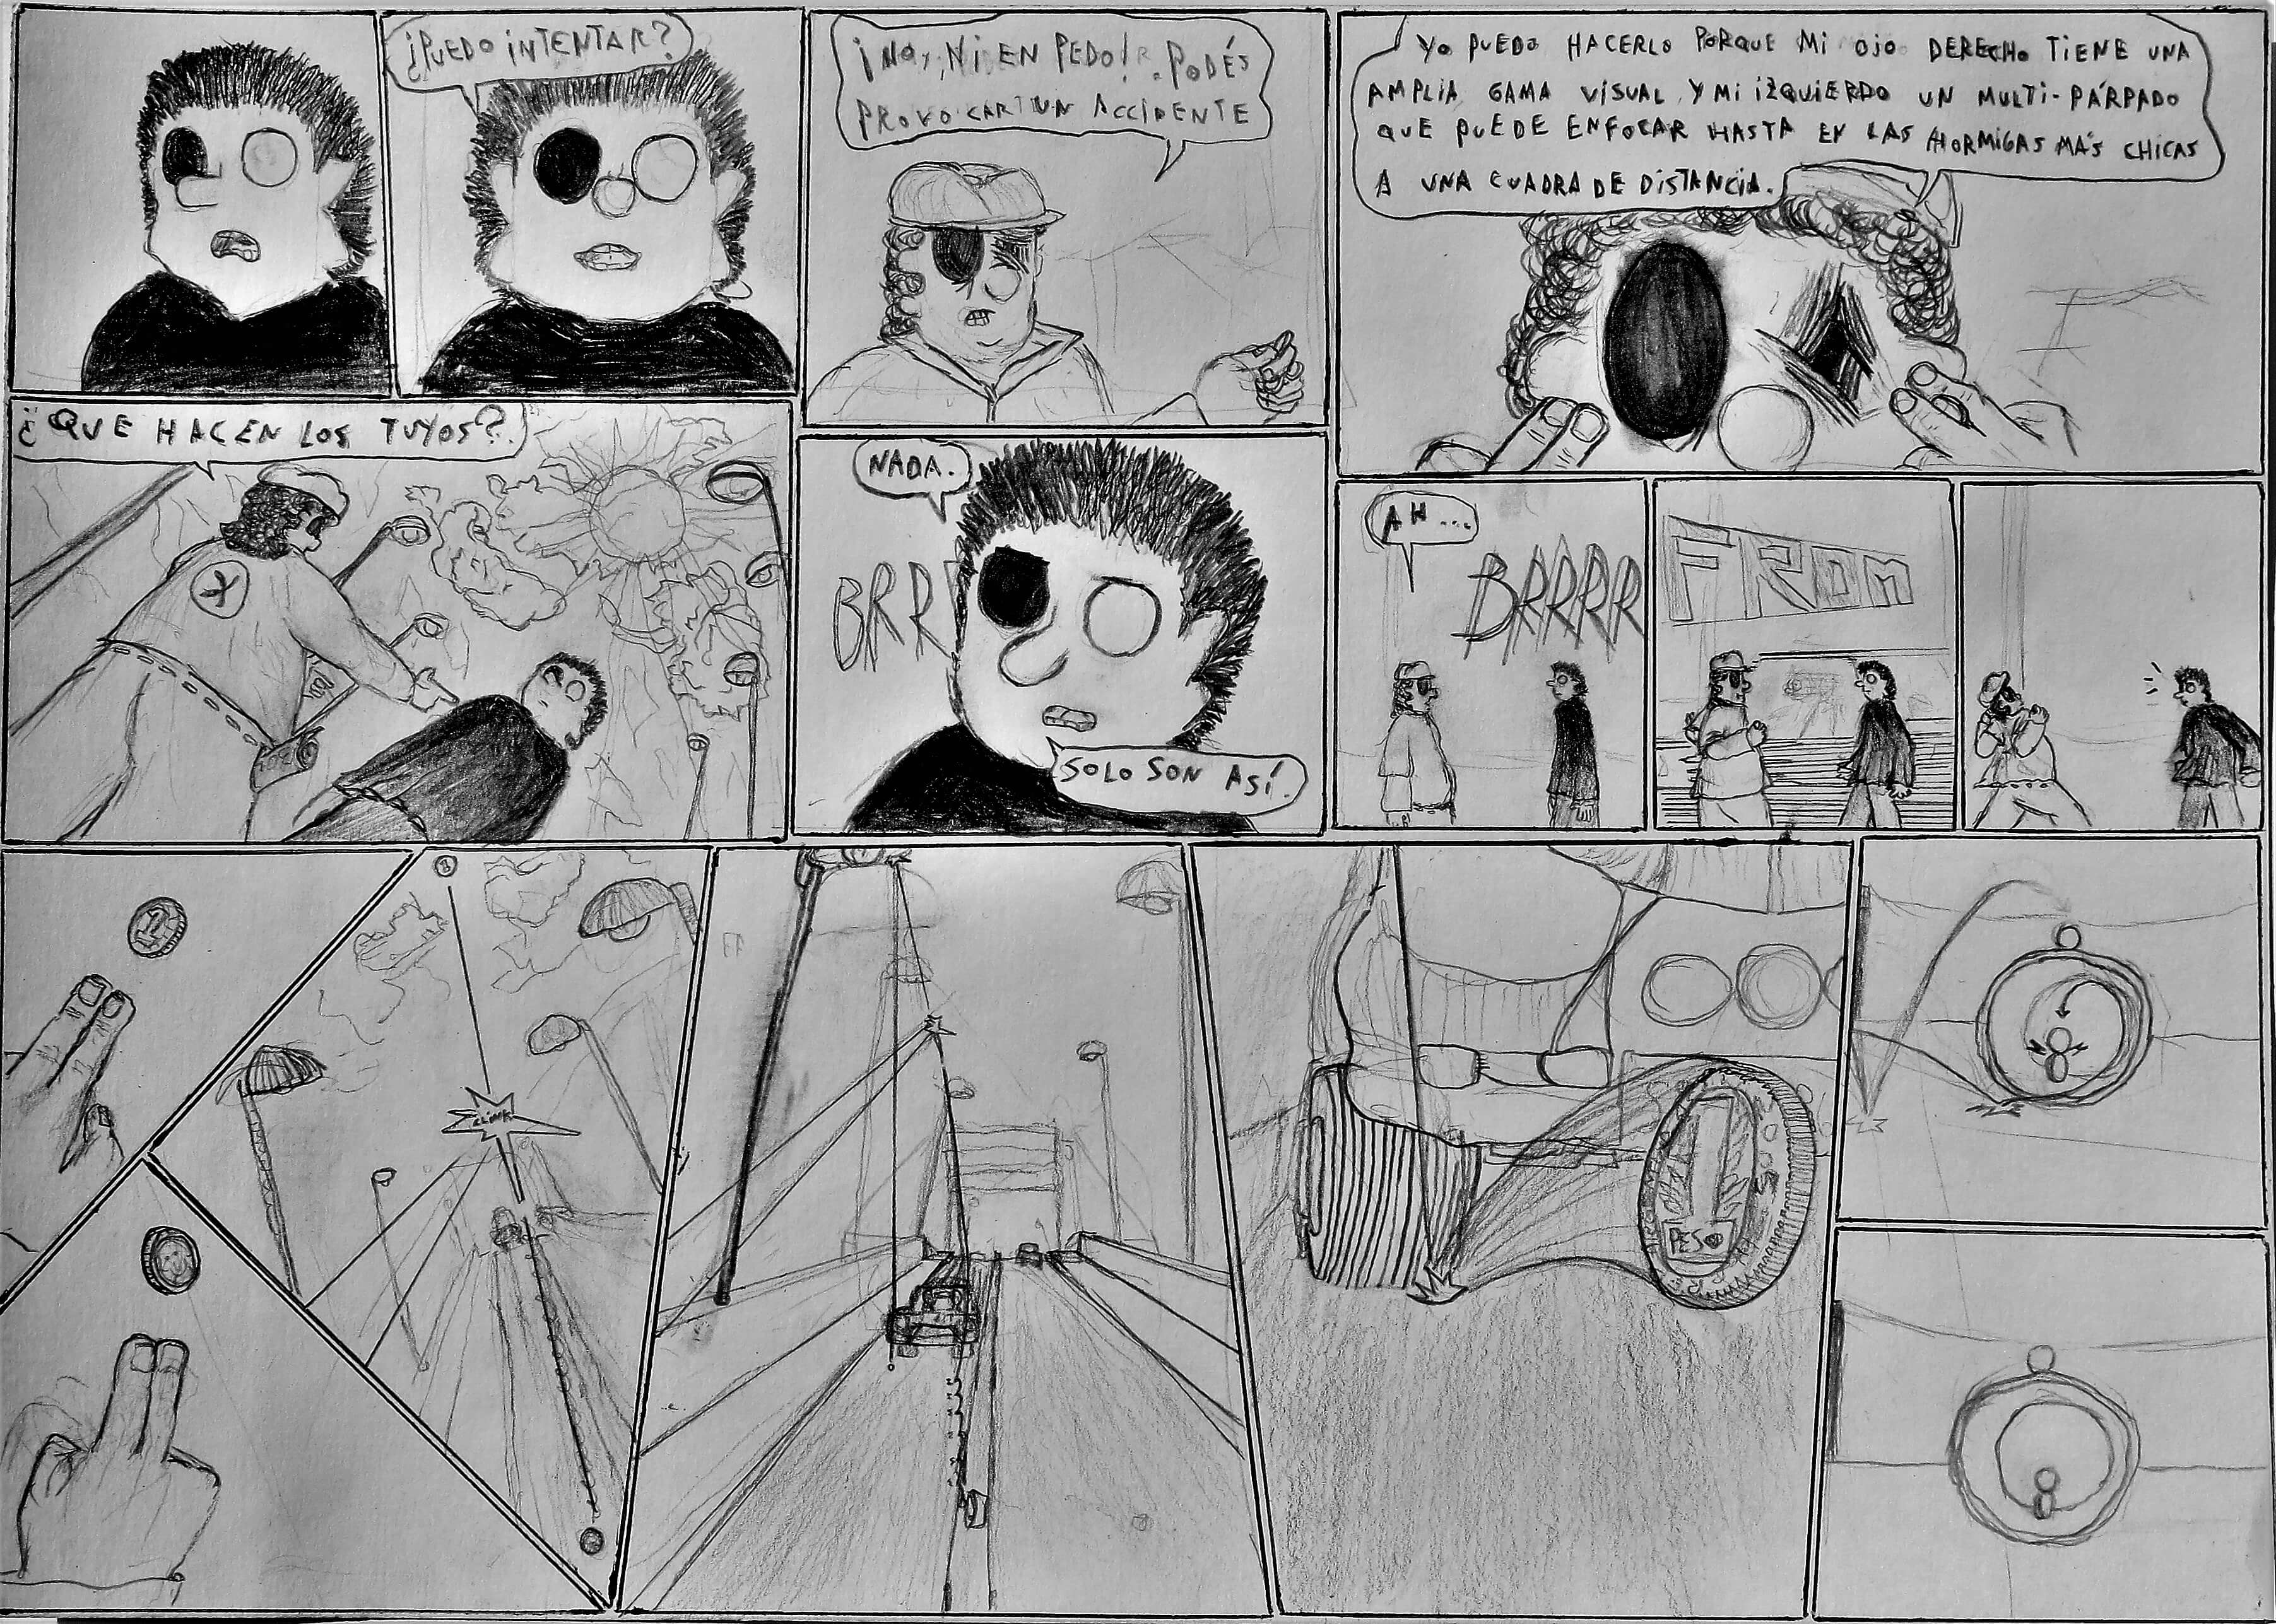 ¿PUEDO INTENTAR?
¡NO, NI EN PEDO! PODÉS
PROVOCAR UN ACCIDENTE
YO PUEDO HACERLO PORQUE MI OJO DERECHO TIENE UNA
AMPLIA GAMA VISUAL, Y MI IZQUIERDO UN MULTI-PÁRPADO
QUE PUEDE ENFOCAR HASTA EN LAS HORMIGAS MÁS CHICAS
A UNA CUADRA DE DISTANCIA.
¿QUE HACEN LOS TUYOS?
NADA.
BRR
SOLO SON ASÍ.
AH...
BRRRR
FROM
1
CLINK
1
PESO